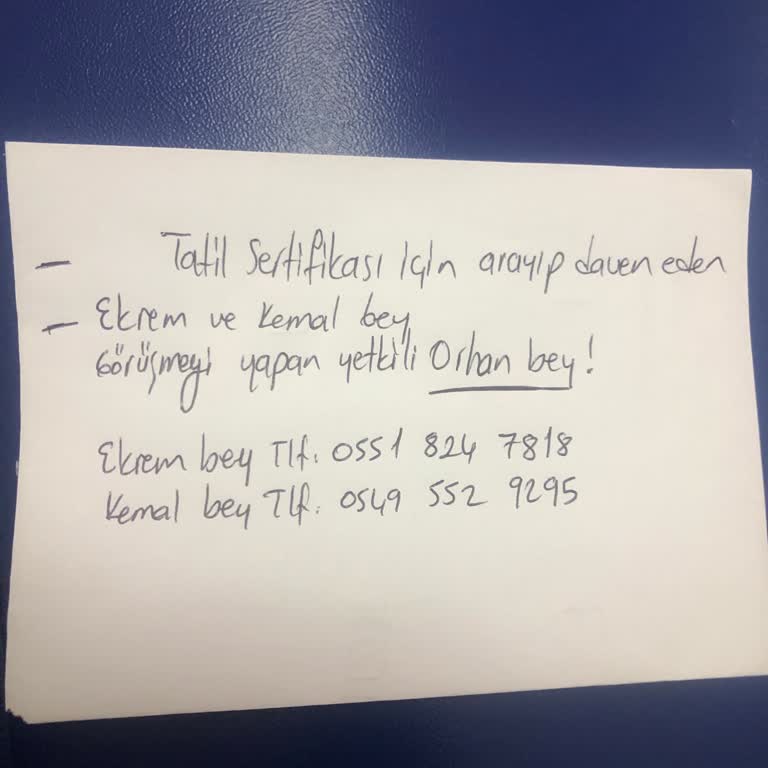 - Tatil Sertifikası için arayıp daven eden
- Ekrem ve Kemal bey
Görüşmeyi yapan yetkili Orhan bey!
Ekrem bey Tlf: 0551 824 7818
Kemal bey Tlf: 0549 552 9295